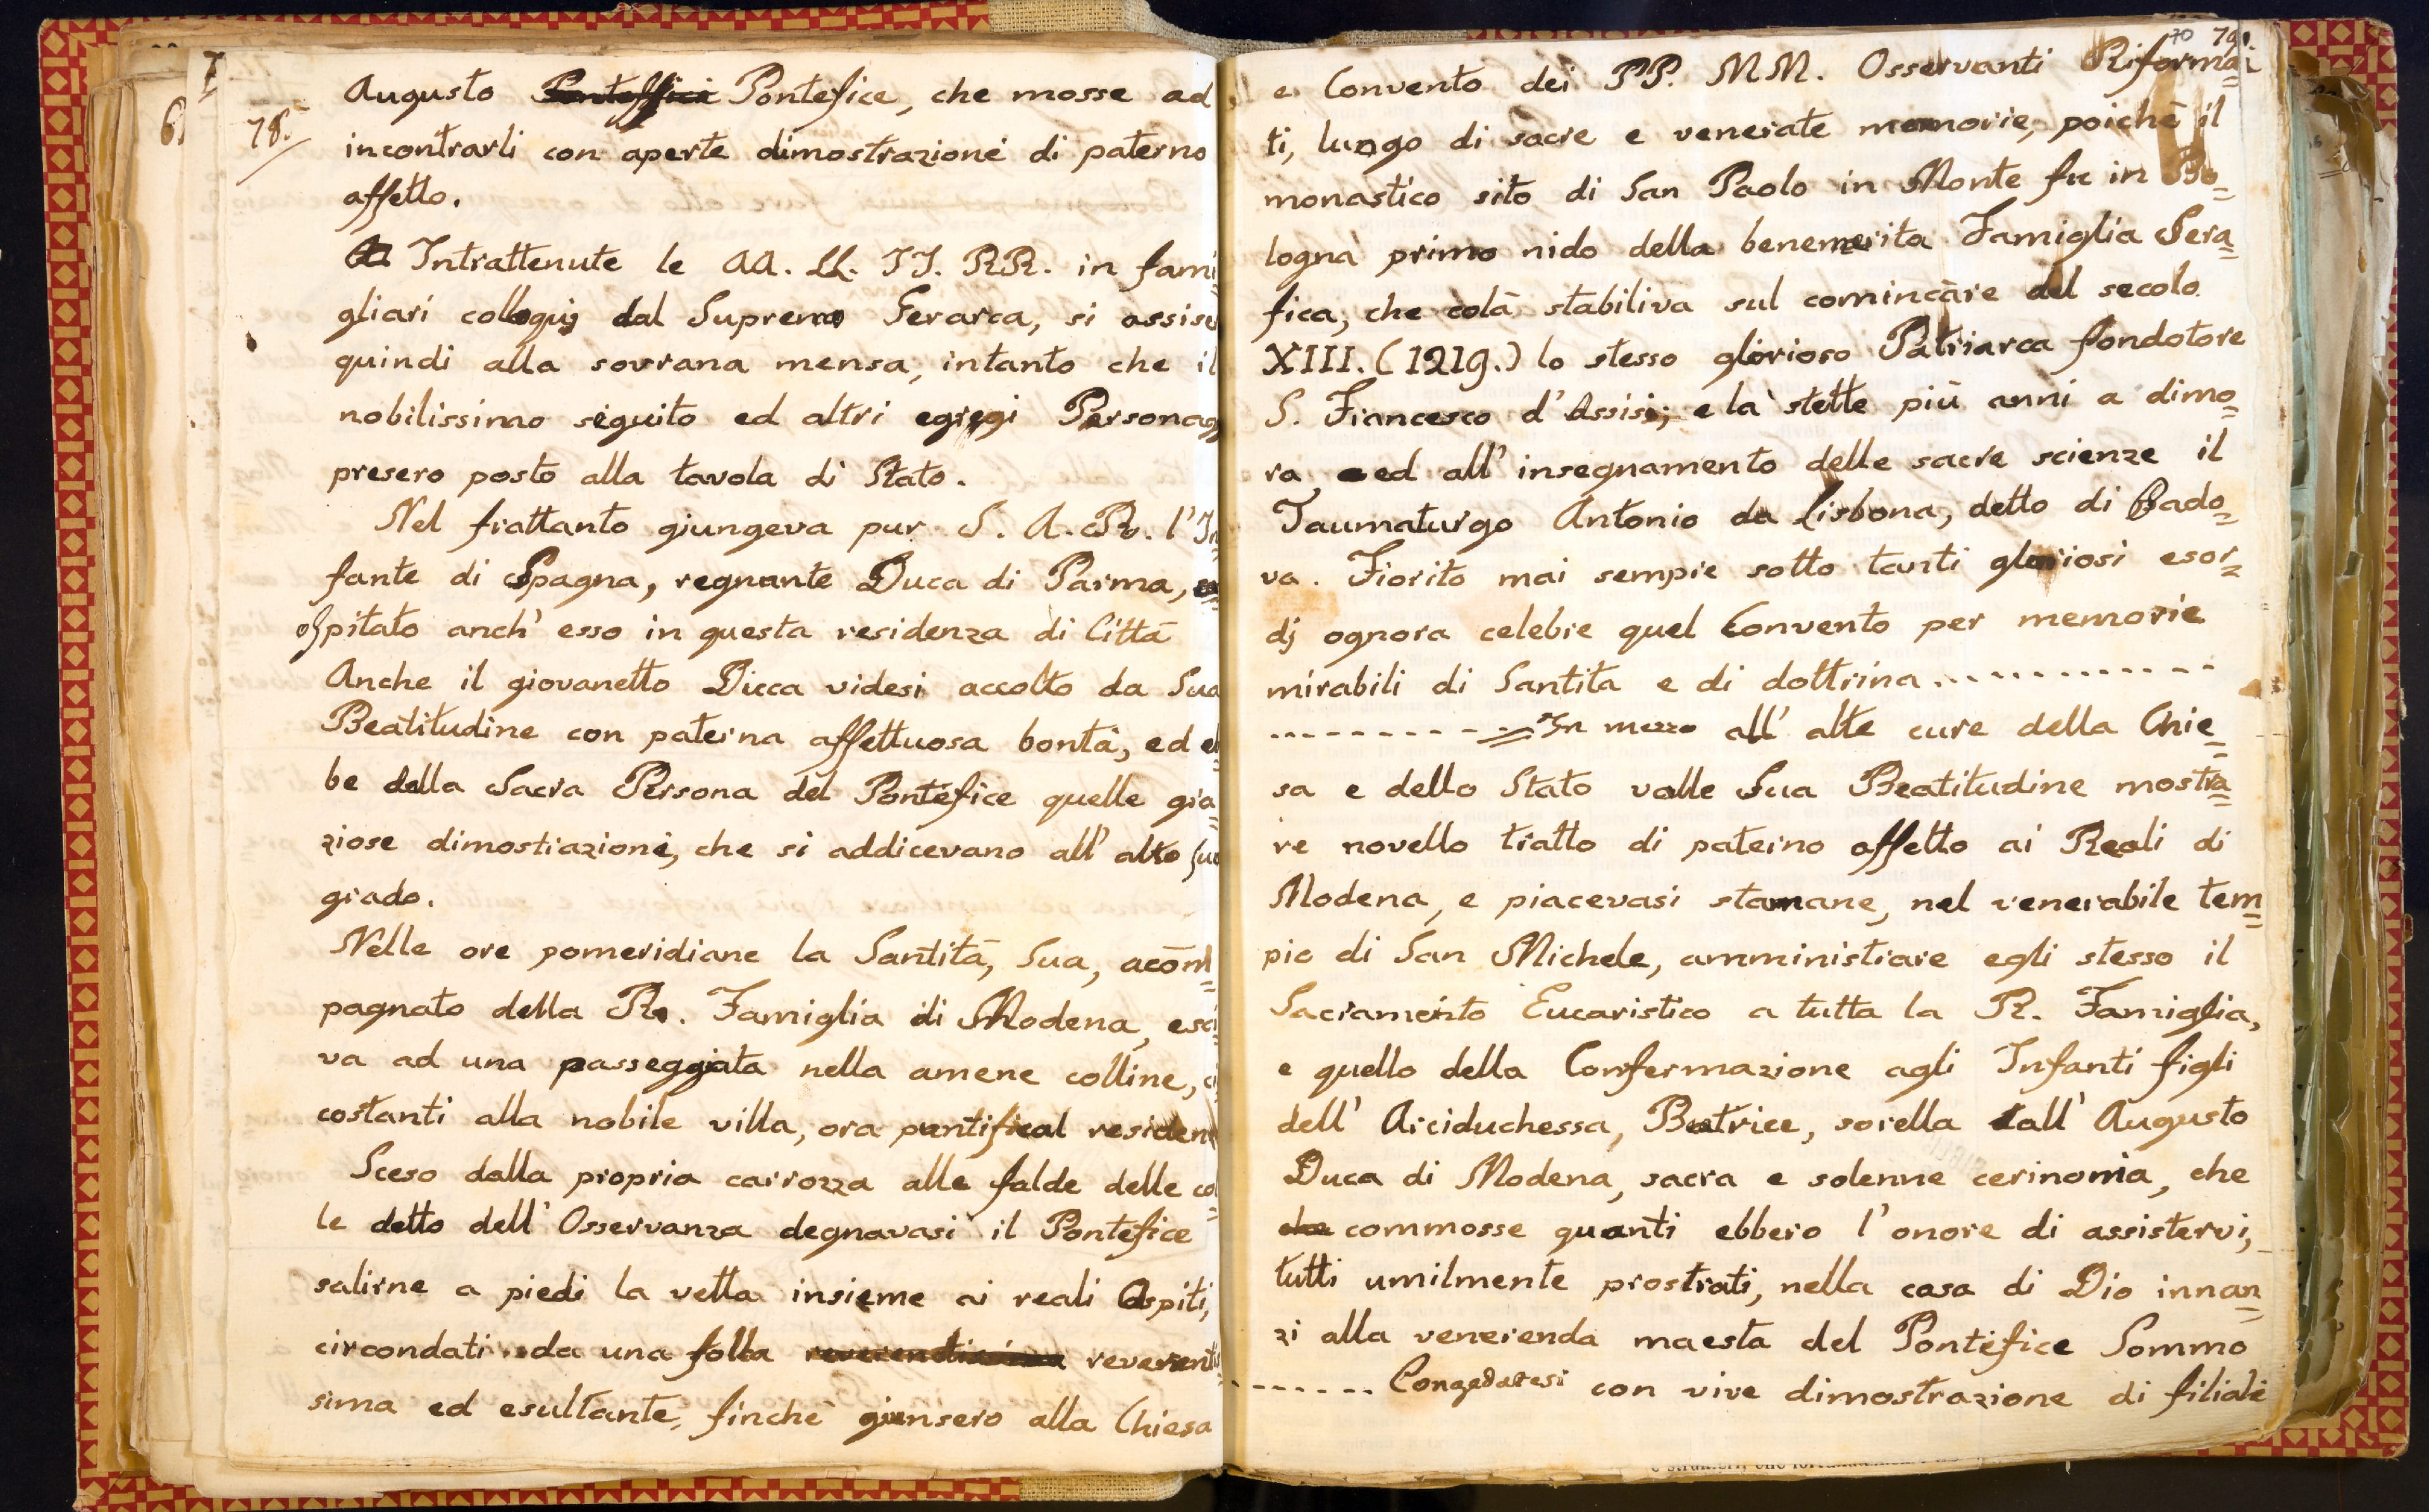 78.
Augusto Ponteffici Pontefice, che mosse ad
incontrarli con aperte dimostrazioni di paterno
affetto.
Intrattenute le AA. LL. II. RR. in fami
gliari colloquj dal Supremo Gerarca, si assise
quindi alla sovrana mensa, intanto che il
nobilissimo seguito ed altri egregi Personag
presero posto alla tavola di Stato.
Nel frattanto giungeva pur S. A. R. l'In
fante di Spagna, regnante Duca di Parma,
ospitato anch' esso in questa residenza di Città
Anche il giovanetto Duca videsi accolto da Sua
Beatitudine con paterna affettuosa bontà, ed eb
be della Sacra Persona del Pontefice quelle gra
ziose dimostrazioni, che si addicevano all' alto suo
grado.
Nelle ore pomeridiane la Santità, Sua, acom
pagnato della R. Famiglia di Modena, esci
va ad una passeggiata nella amene colline,
costanti alla nobile villa, ora pontifical residen
Sceso dalla propria carrozza alle falde delle col
le detto dell' Osservanza degnavasi il Pontefice
salirne a piedi la vetta insieme ai reali Ospiti,
circondati da una folla reverendissima reverentis
sima ed esultante, finchè giunsero alla Chiesa
70 79.
e Convento dei PP. MM. Osservanti Riforma
ti, luogo di sacre e venerate memorie, poichè il
monastico sito di San Paolo in Monte fu in Bo
logna primo nido della benemerita Famiglia Sera
fica, che colà stabiliva sul cominciare del secolo
XIII. (1219.) lo stesso glorioso Patriarca fondotore
S. Francesco d' Assisi; e là stette più anni a dimo
ra ed all' insegnamento delle sacre scienze il
Taumaturgo Antonio da Lisbona, detto di Pado
va. Fiorito mai sempre sotto tanti gloriosi esor
dj ognora celebre quel Convento per memorie
mirabili di Santita e di dottrina.............
............. In mezzo all' alte cure della Chie
sa e dello Stato volle Sua Beatitudine mostra
re novello tratto di paterno affetto ai Reali di
Modena, e piacevasi stamane, nel venerabile tem
pio di San Michele, amministrare egli stesso il
Sacramento Eucaristico a tutta la R. Famiglia,
e quello della Confermazione agli Infanti figli
dell' Arciduchessa, Beatrice, sorella dall' Augusto
Duca di Modena, sacra e solenne cerinomia, che
che commosse quanti ebbero l'onore di assistervi,
tutti umilmente prostrati, nella casa di Dio innan
zi alla venerenda maesta del Pontefice Sommo
....... Congedatesi con vive dimostrazione di filiale